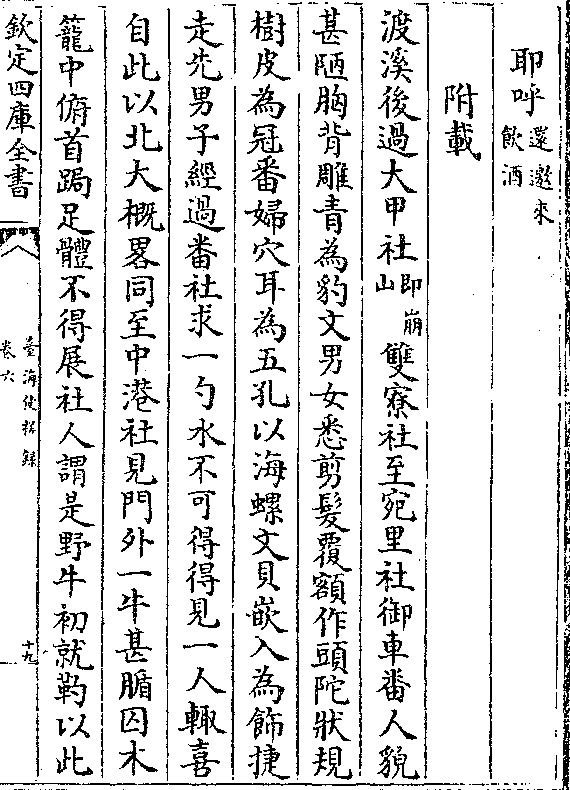 耶呼還邀來飲酒
附載
渡溪後過大甲社即崩山雙寮社至宛里社御車番人貌
甚陋胸背雕青為豹文男女悉剪髮覆額作頭陀狀規
樹皮為冠番婦穴耳為五孔以海螺文貝嵌入為飾捷
走先男子經過番社求一勺水不可得得見一人輙喜
自此以北大概畧同至中港社見門外一牛甚腯囚木
籠中俯首跼足體不得展社人謂是野牛初就靮以此
欽定四庫全書
臺海使槎録
卷六
十九